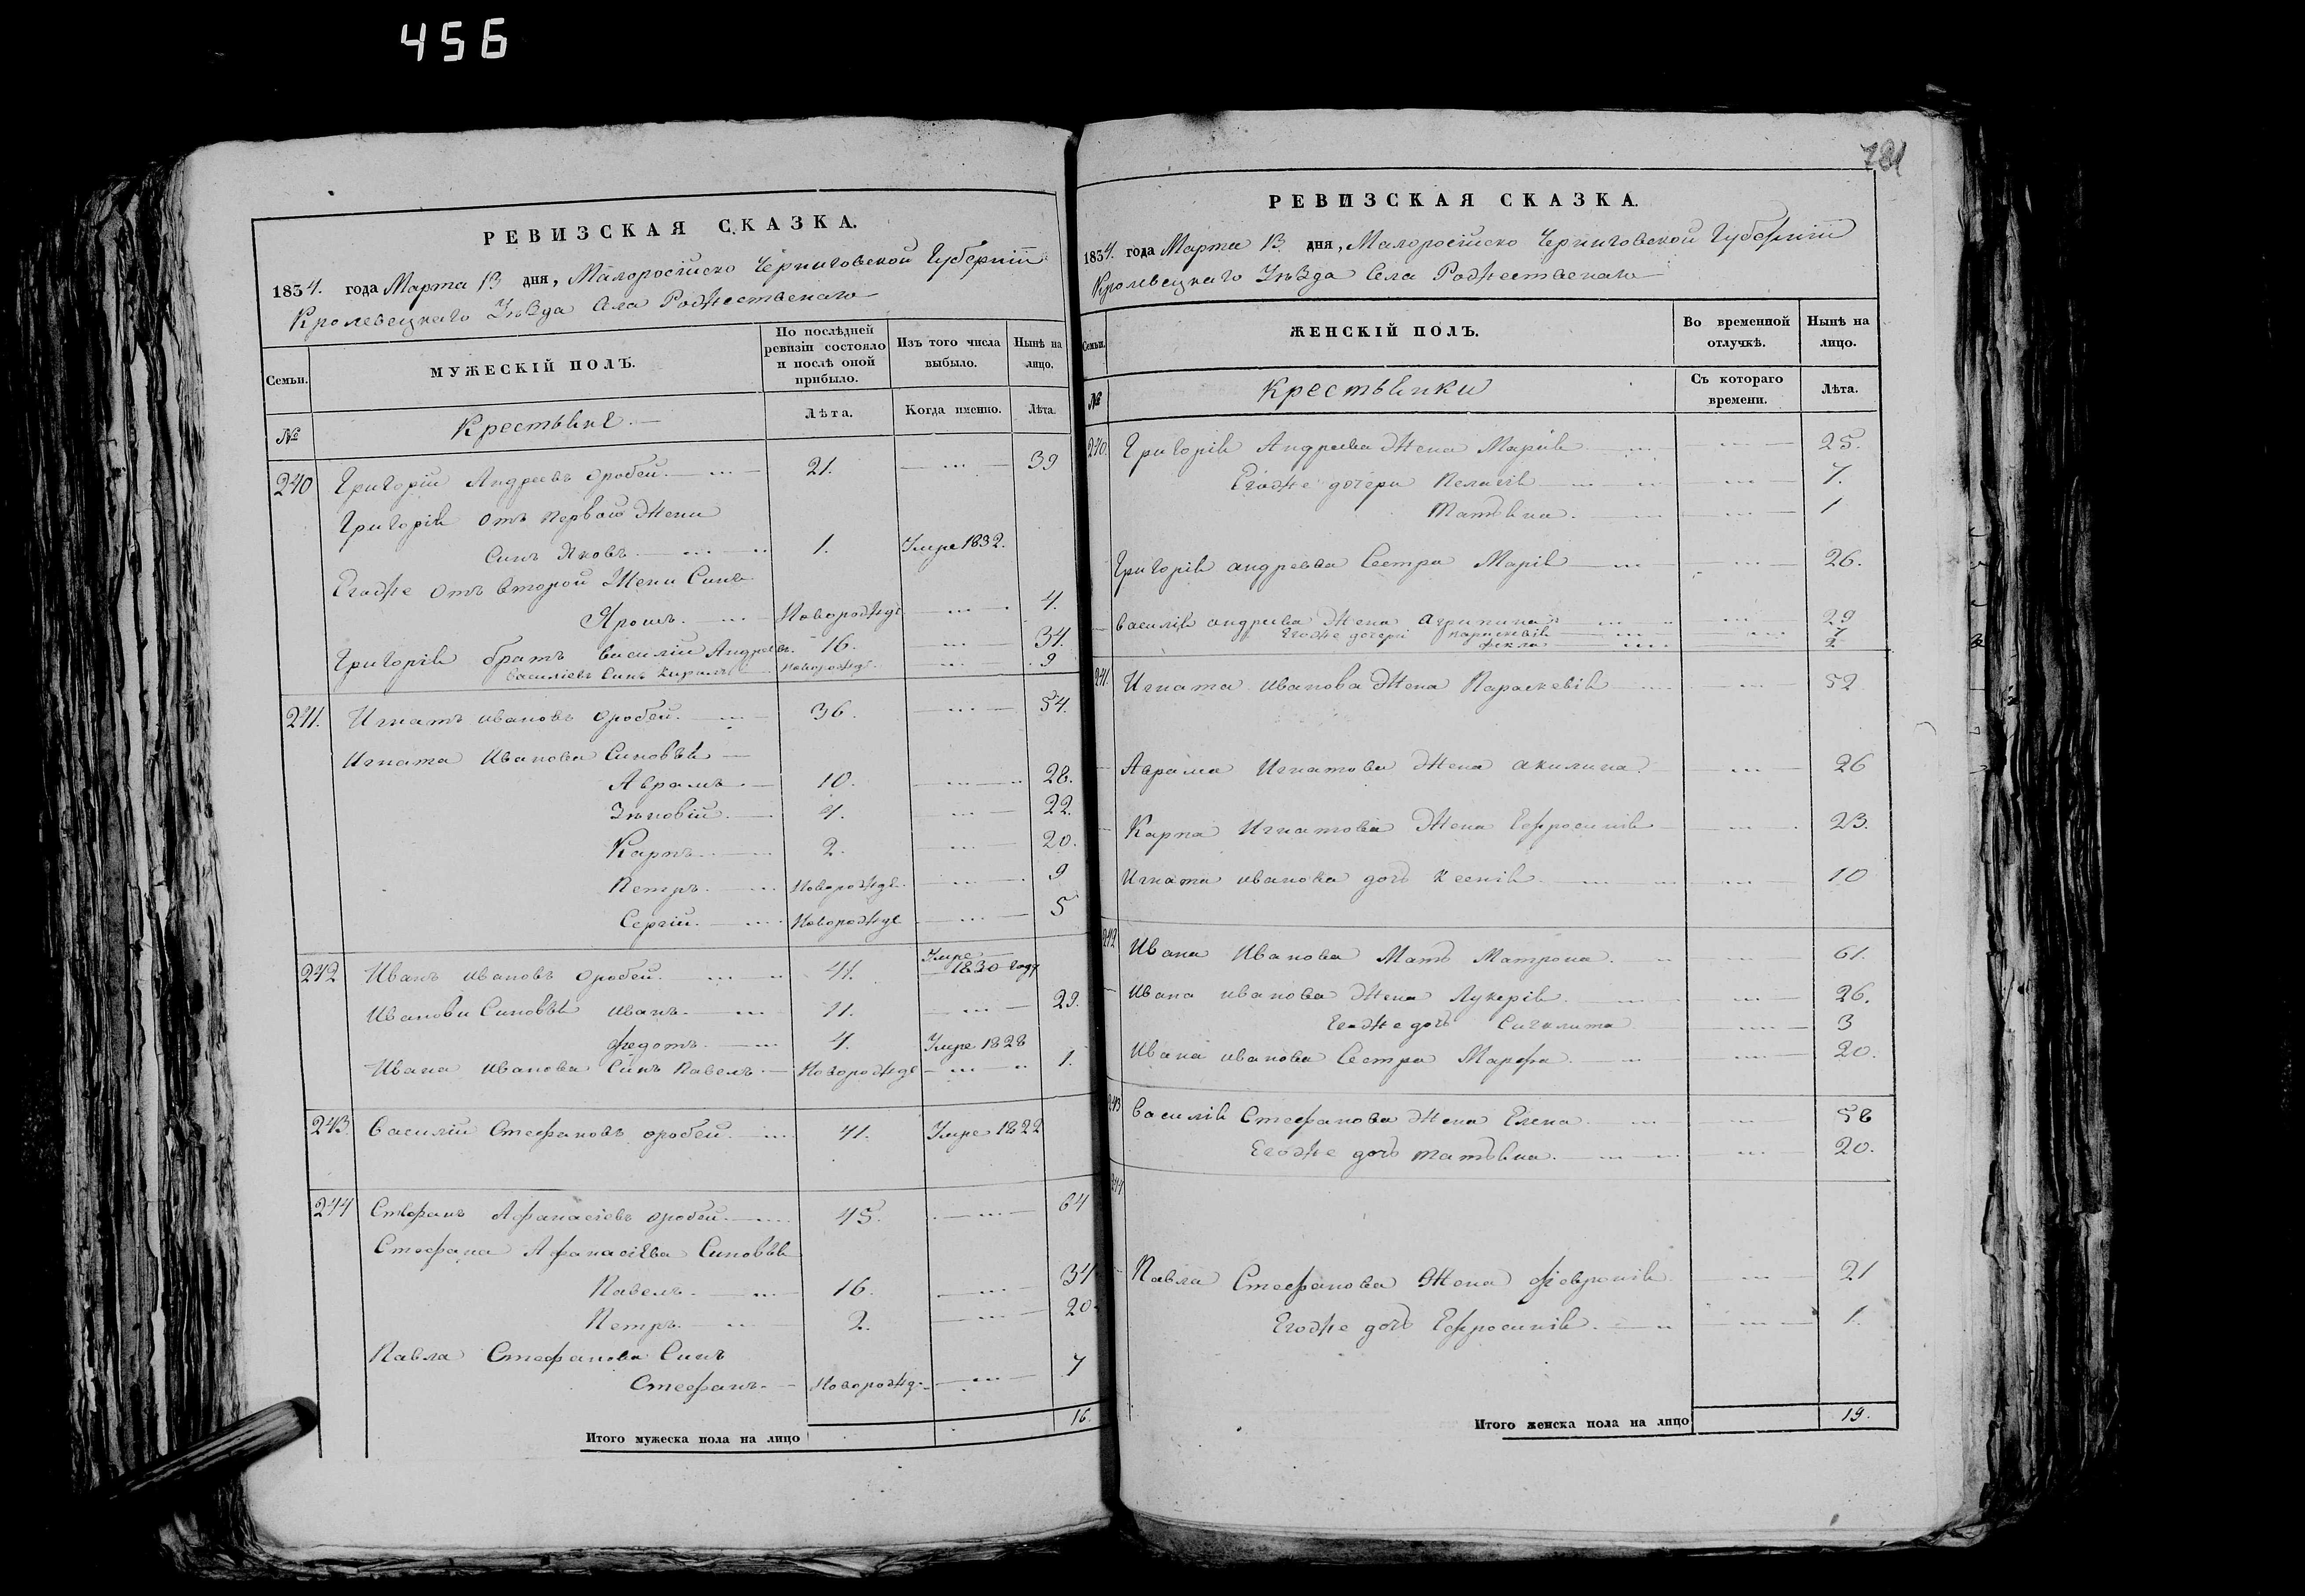 456
РЕВИЗСКАЯ СКАЗКА.
1834. года Марта 13 дня, Малоросiйско Черниговской Губернiи
Кролевецкаго Уѣзда Села Рождественаго
Семьи.
МУЖЕСКIЙ ПОЛЪ.
По послѣдней ревизiи состояло и послѣ оной прибыло.
Изъ того числа выбыло.
Нынѣ на лицо.
№
Крестьяне
Лѣта.
Когда именно.
Лѣта.
240 Григорiй Андреевъ оробей 21. 39
Григорiя отъ первой жени
Синъ Яковъ 1. Умре 1832.
Егожъе отъ второй Жени Синъ
Ярошъ Новорожде 4.
Григорiя братъ василiй Андреевъ 16. 34.
василiевъ Синъ Кирилъ новорожде 9
241. Игнатъ ивановъ оробей. 36. 54.
Игната Иванова Синовья
Аврамъ 10. 28.
Зѣновiй 4. 22.
Карпъ 2. 20.
Петръ Новорожде 9
Сергiй Новорожде 5
242 Иванъ ивановъ оробей 41. Умре 1830 году
Иванови Синовья иванъ 11. 29.
федотъ 4. Умре 1828
Ивана иванова Синъ Павелъ Новорожде 1.
243 василiй Стефановъ оробей 41. Умре 1822
244 Стефанъ Афанасiевъ оробей 45. 64
Стефана Афанасiева Синовья
Павелъ 16. 34
Петръ 2. 20
Павла Стефанова Синъ
Стефанъ Новорожде 7
Итого мужеска пола на лицо 16.
781
РЕВИЗСКАЯ СКАЗКА.
1834. года Марта 13 дня, Малоросiйско Черниговской Губернiи
Кролевецкаго Уѣзда Села Рождественаго
Семьи.
ЖЕНСКIЙ ПОЛЪ.
Во временной отлучкѣ.
Нынѣ на лицо.
№
Крестьянки
Съ котораго времени.
Лѣта.
240. Григорiя Андреева Жена Марiя 25.
Егожъе дочери Пелагiя 7.
Татьяна 1
Григорiя андреева Сестра Марiя 26.
василiя андреева Жена агрипина 29
Егожъе дочери параскевiя 7
фекла 2
241. Игната иванова Жена Параскевiя 52
Аврама Игнатова Жена акилина 26
Карпа Игнатова Жена Ефросинiя 23.
Игната иванова дочь ксенiя 10
242 Ивана Иванова Мать Матрона 61.
Ивана иванова Жена Лукерiя 26.
Егожъе дочь Сигклита 3
Ивана иванова Сестра Марфа 20.
243 василiя Стефанова Жена Елена 58
Егожъе дочь татьяна 20.
244
Павла Стефанова Жена февронiя 21
Егожъе дочь Ефросинiя 1.
Итого женска пола на лицо 19.